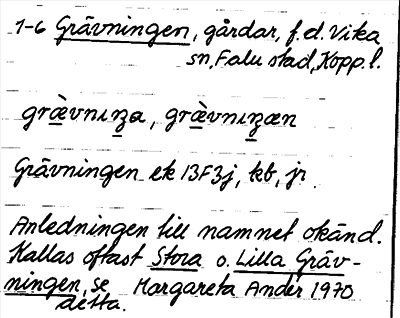 1-6 Grävningen, gårdar, f.d. Vika
sn, Falu stad, Kopp.l.
græ̀vnıŋa, græ̀vnıŋæn
Grävningen ek 13F3j, kb, jr
Anledningen till namnet okänd.
Kallas oftast Stora o. Lilla Gräv-
ningen, se Margareta Ander 1970
detta.